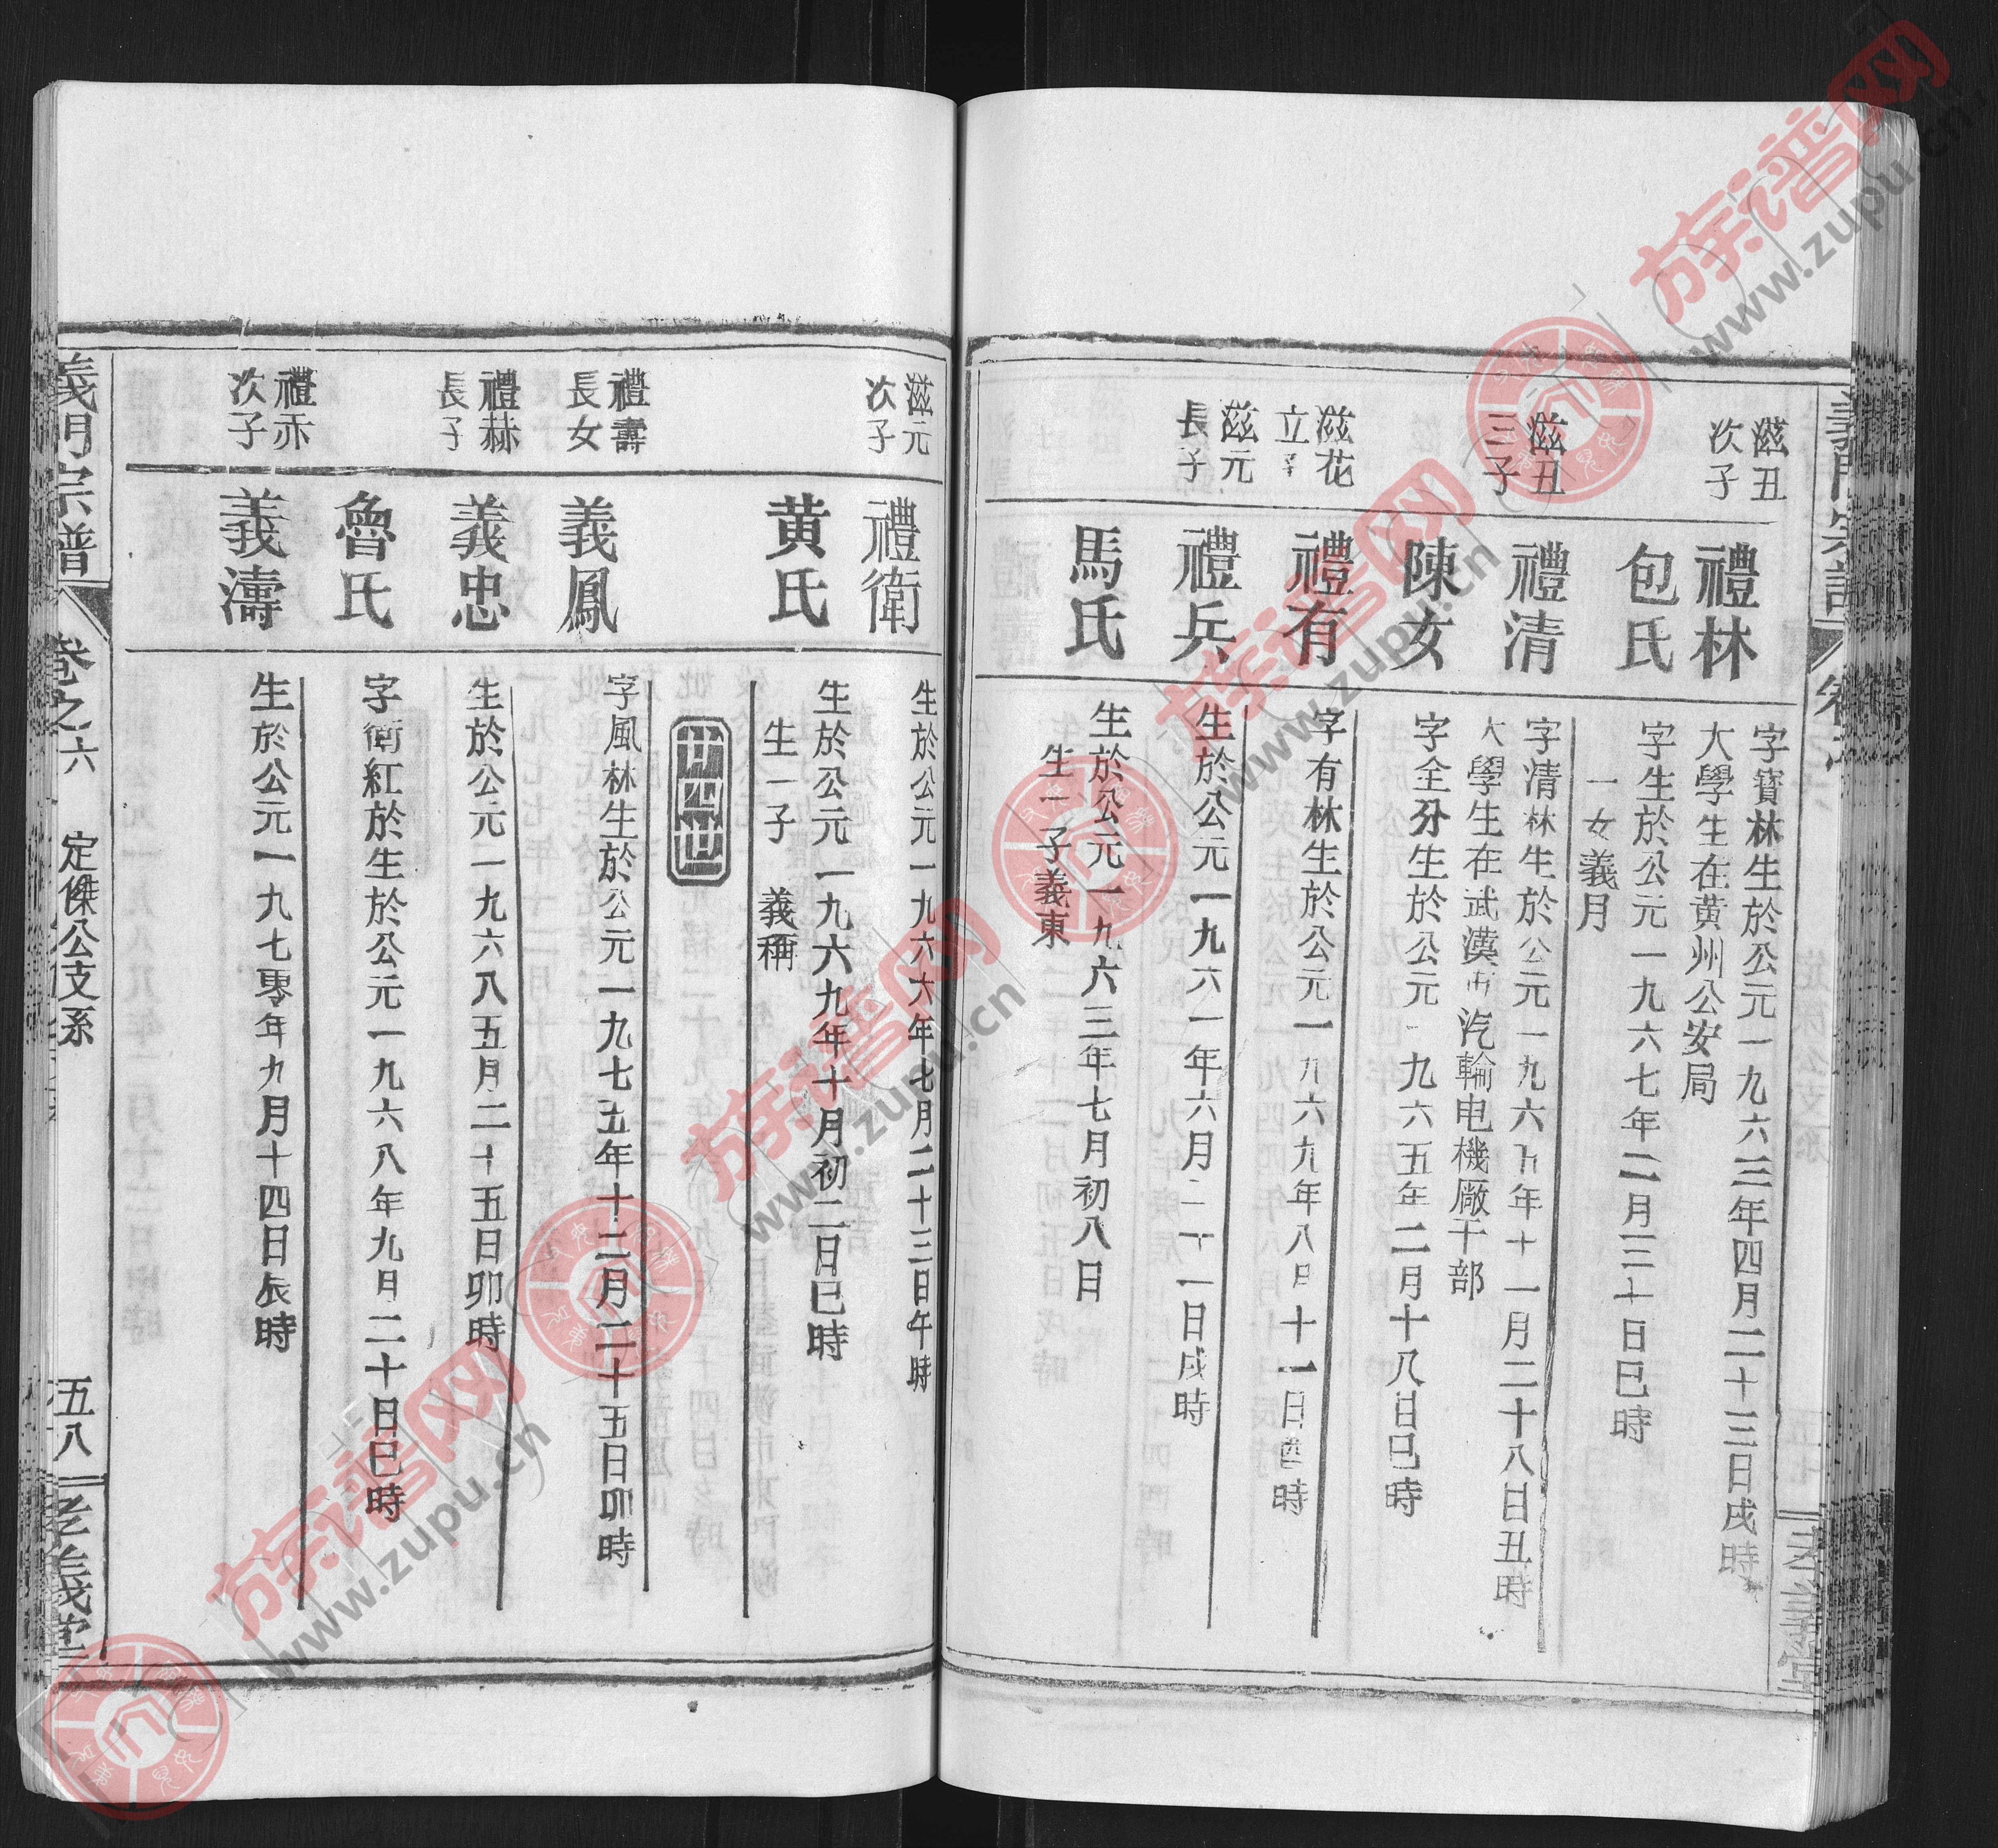 滋丑
次子
禮林
字寶林生於公元一九六三年四月二十三日戌時
大學生在黄州公安局
包氏
字生於公元一九六七年二月三十日巳時
一女義月
滋丑
三子
禮清
字清林生於公元一九六五年十一月二十八日丑時
大學生在武漢市汽輪电機廠干部
陳女
字全分生於公元一九六五年二月十八日巳時
滋花
立子
禮有
字有林生於公元一九六九年八月十一日酉時
滋元
長子
禮兵
生於公元一九六一年六月二十一日戌時
馬氏
生於公元一九六三年七月初八日
生一子義東
滋元
次子
禮衛
生於公元一九六六年七月二十三日午時
黄氏
生於公元一九六九年十月初二日巳時
生一子 義稱
廿四世
禮壽
長女
義鳳
字風林生於公元一九七五年十二月二十五日卯時
禮赫
長子
義忠
生於公元一九六八五月二十五日卯時
魯氏
字衛紅於生於公元一九六八年九月二十日巳時
禮赤
次子
義濤
生於公元一九七零年九月十四日辰時
義門宗譜 卷之六 定傑公支系 五八 孝義堂
族谱网
www.zupu.cn
族谱网
www.zupu.cn
族谱网
www.zupu.cn
族谱网
www.zupu.cn